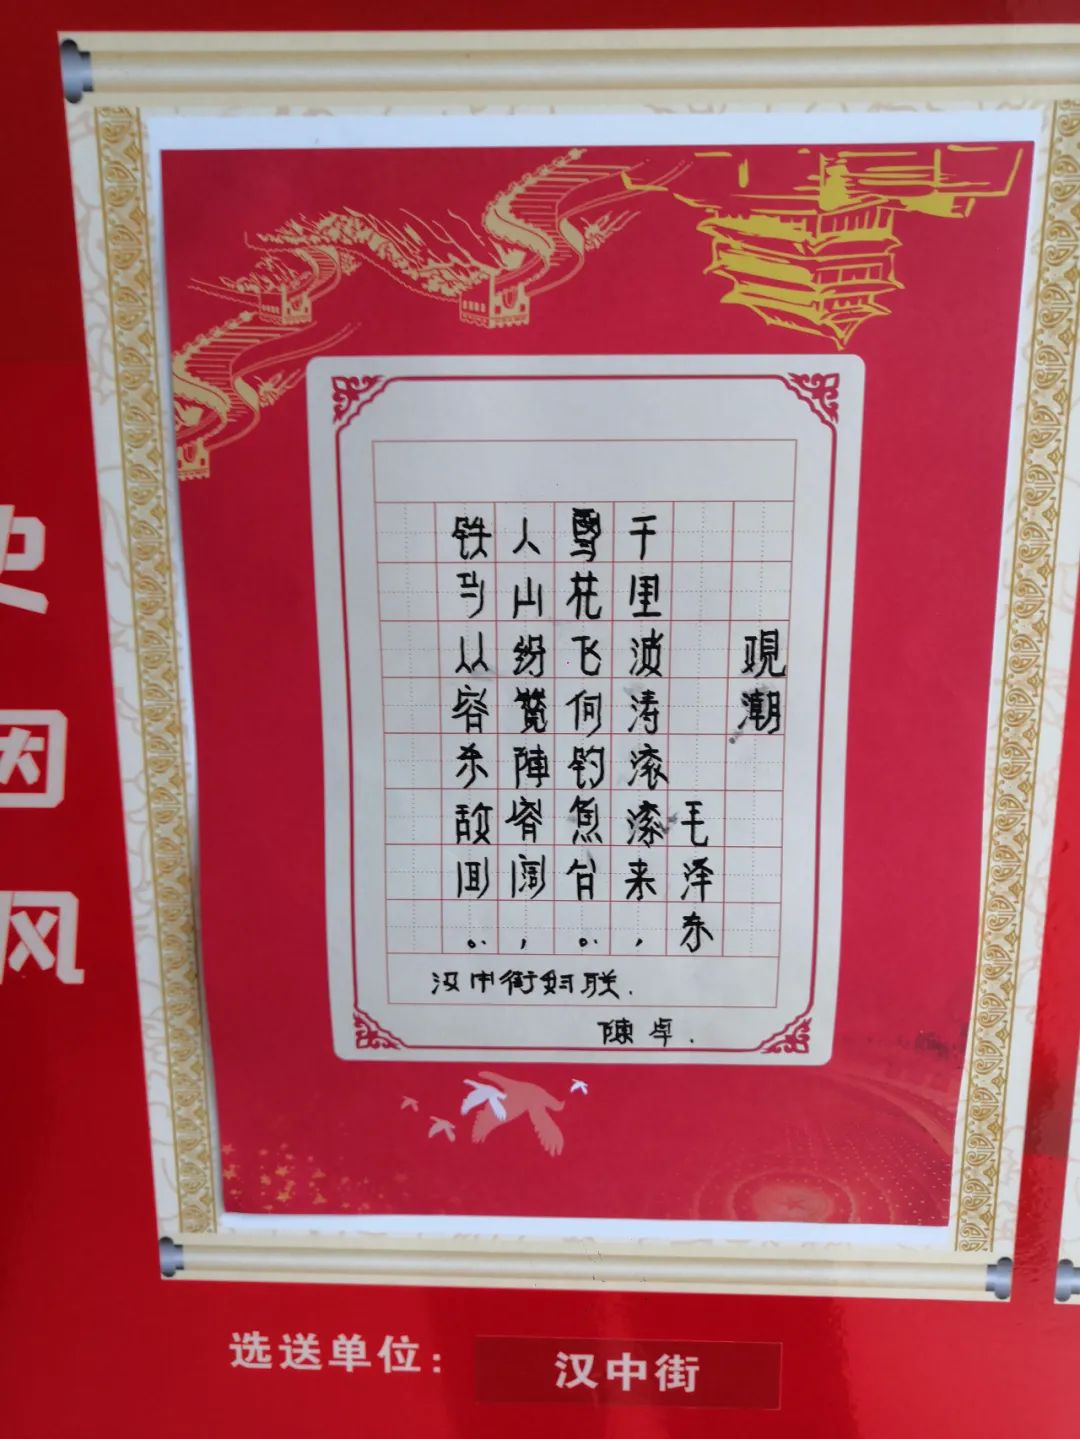 覌潮
毛泽东
千里波涛滚滚来，
雪花飞何钓魚台。
人山纷赞陣容阔，
铁马从容杀敌回。
汉中街妇联.
陳卓.
风
选送单位：
汉中街